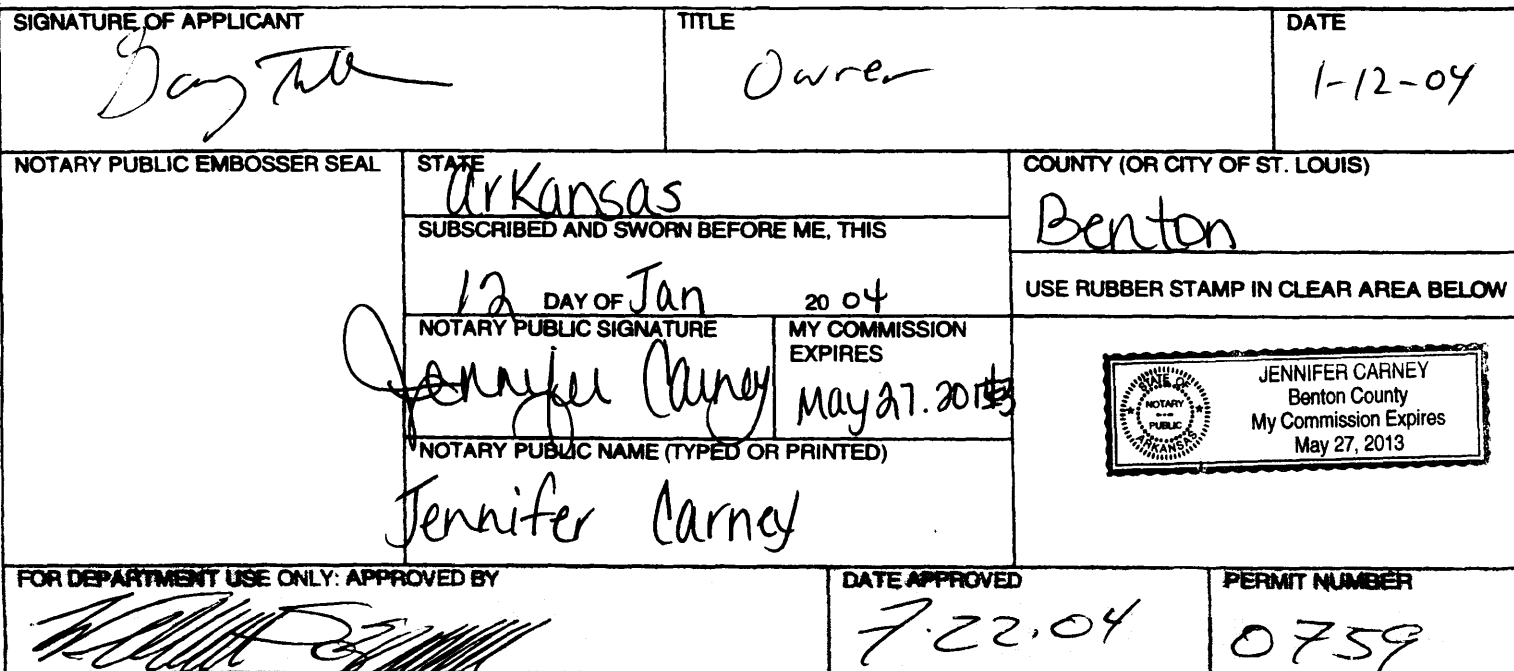 SIGNATURE OF APPLICANT
TITLE
DATE
Owner
1-12-04
NOTARY PUBLIC EMBOSSER SEAL
STATE
Arkansas
COUNTY (OR CITY OF ST. LOUIS)
Benton
SUBSCRIBED AND SWORN BEFORE ME, THIS
12 DAY OF Jan 20 04
USE RUBBER STAMP IN CLEAR AREA BELOW
NOTARY PUBLIC SIGNATURE
Jennifer Carney
MY COMMISSION
EXPIRES
May 27. 2013
STATE OF
NOTARY
PUBLIC
ARKANSAS
JENNIFER CARNEY
Benton County
My Commission Expires
May 27, 2013
NOTARY PUBLIC NAME (TYPED OR PRINTED)
Jennifer Carney
FOR DEPARTMENT USE ONLY: APPROVED BY
DATE APPROVED
7.22.04
PERMIT NUMBER
0759